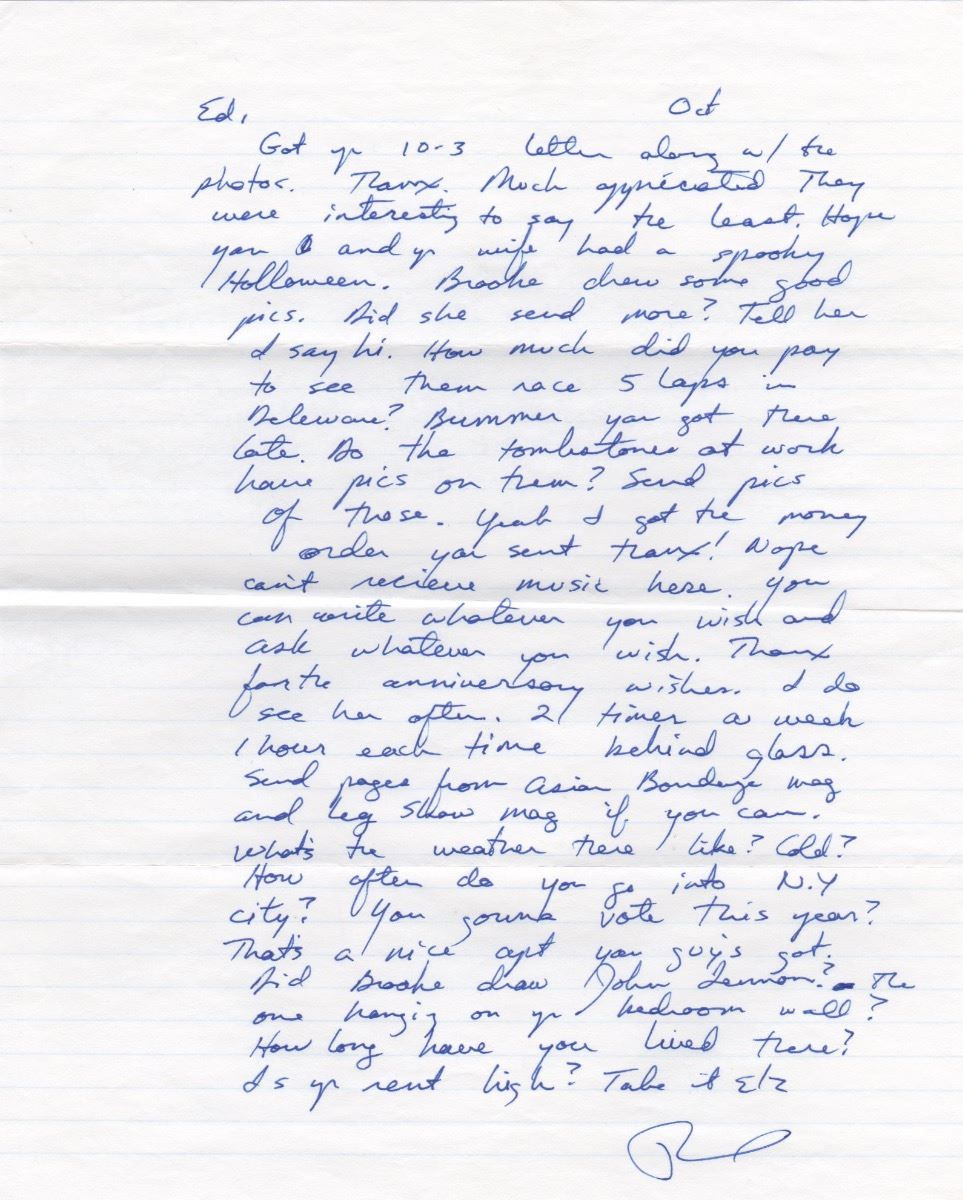 Ed,    Oct
Got yr 10-3 letter along w/ the
photos. Thanx. Much apprêciated They
were interestig to say the least. Hope
you and yr wife had a spooky
Holloween. Brooke drew some good
pics. Did she send more? Tell her
I say hi. How much did you pay
to see them race 5 laps in
Deleware? Bummer you got there
late. Do the tombstones at work
have pics on them? Send pics
of those. Yeah I got the money
order you sent thanx! Nope
can't recieve music here. You
can write whatever you wish and
ask whatever you wish. Thanx
for the anniversary wishes. I do
see her often. 2 times a week
1 hour each time behind glass.
Send pages from Asian Bondage mag
and Leg Show mag if you can.
What's the weather there like? Cold?
How often do you go into N.Y
city? You gonna vote this year?
That's a nice apt you guys got.
Did Brooke draw John Lennon? - the
one hangig on yr bedroom wall?
How long have you lived there?
Is yr rent high? Take it E/Z